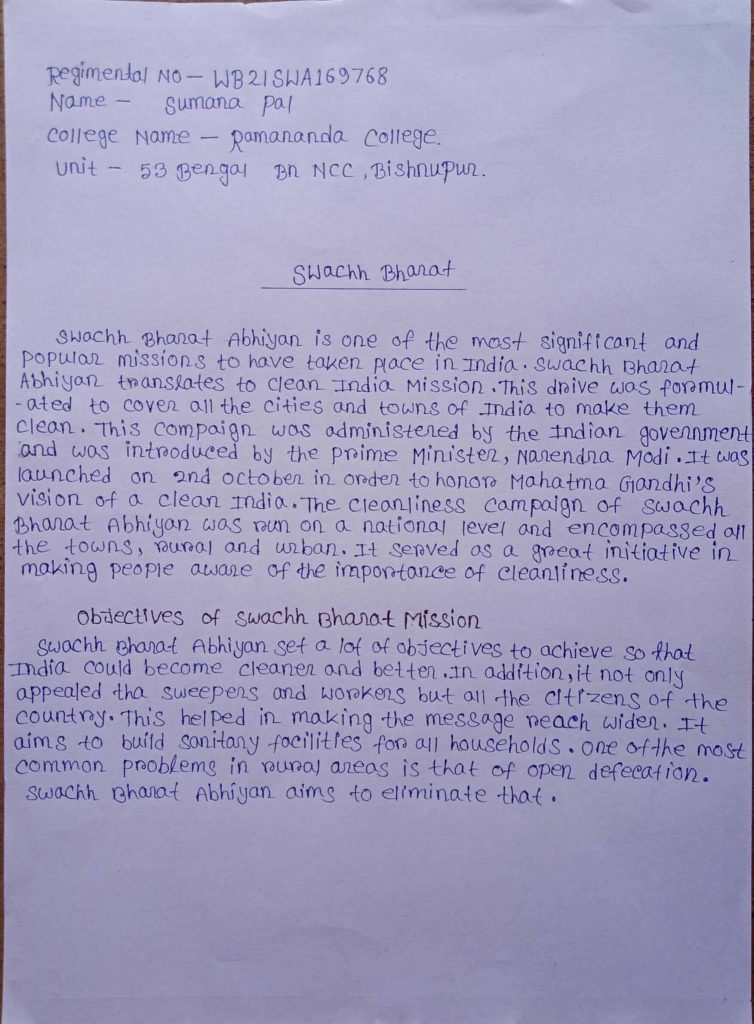 Regimental No - WB21SWA169768
Name - Sumana Pal
College Name - Ramananda College.
Unit - 53 Bengal Bn NCC, Bishnupur.
Swachh Bharat
Swachh Bharat Abhiyan is one of the most significant and
popular missions to have taken place in India. Swachh Bharat
Abhiyan translates to clean India Mission. This drive was formul-
-ated to cover all the cities and towns of India to make them
clean. This compaign was administered by the Indian government
and was introduced by the prime Minister, Narendra Modi. It was
launched on 2nd october in order to honor Mahatma Gandhi's
vision of a clean India. The cleanliness campaign of swachh
Bharat Abhiyan was run on a national level and encompassed all
the towns, rural and urban. It served as a great initiative in
making people aware of the importance of cleanliness.
Objectives of swachh Bharat Mission
Swachh Bharat Abhiyan set a lot of objectives to achieve so that
India could become cleaner and better. In addition, it not only
appealed tha sweepers and workers but all the citizens of the
country. This helped in making the message reach wider. It
aims to build sanitary facilities for all households. One of the most
common problems in rural areas is that of open defecation.
Swachh Bharat Abhiyan aims to eliminate that.